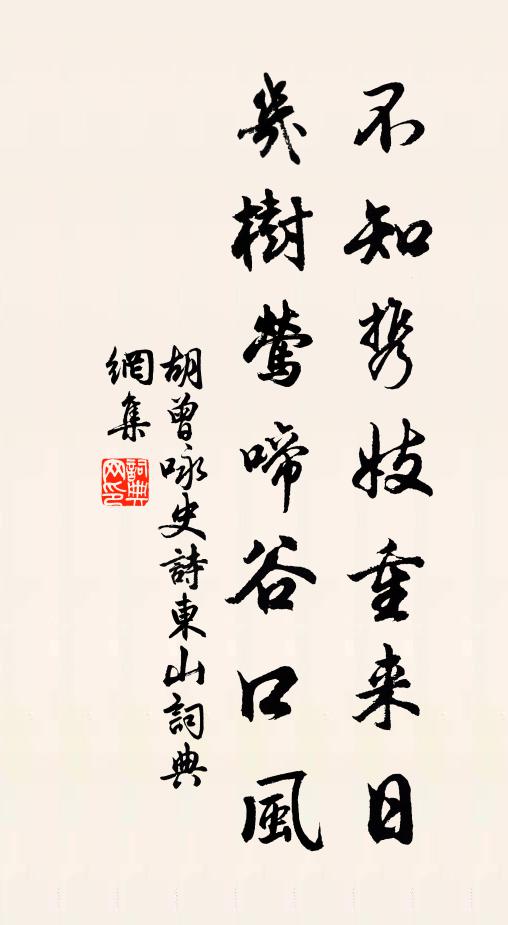 不知携妓重来日
幾樹鶯啼谷口風
胡曾咏史詩東山詞典
網集
詞典網印